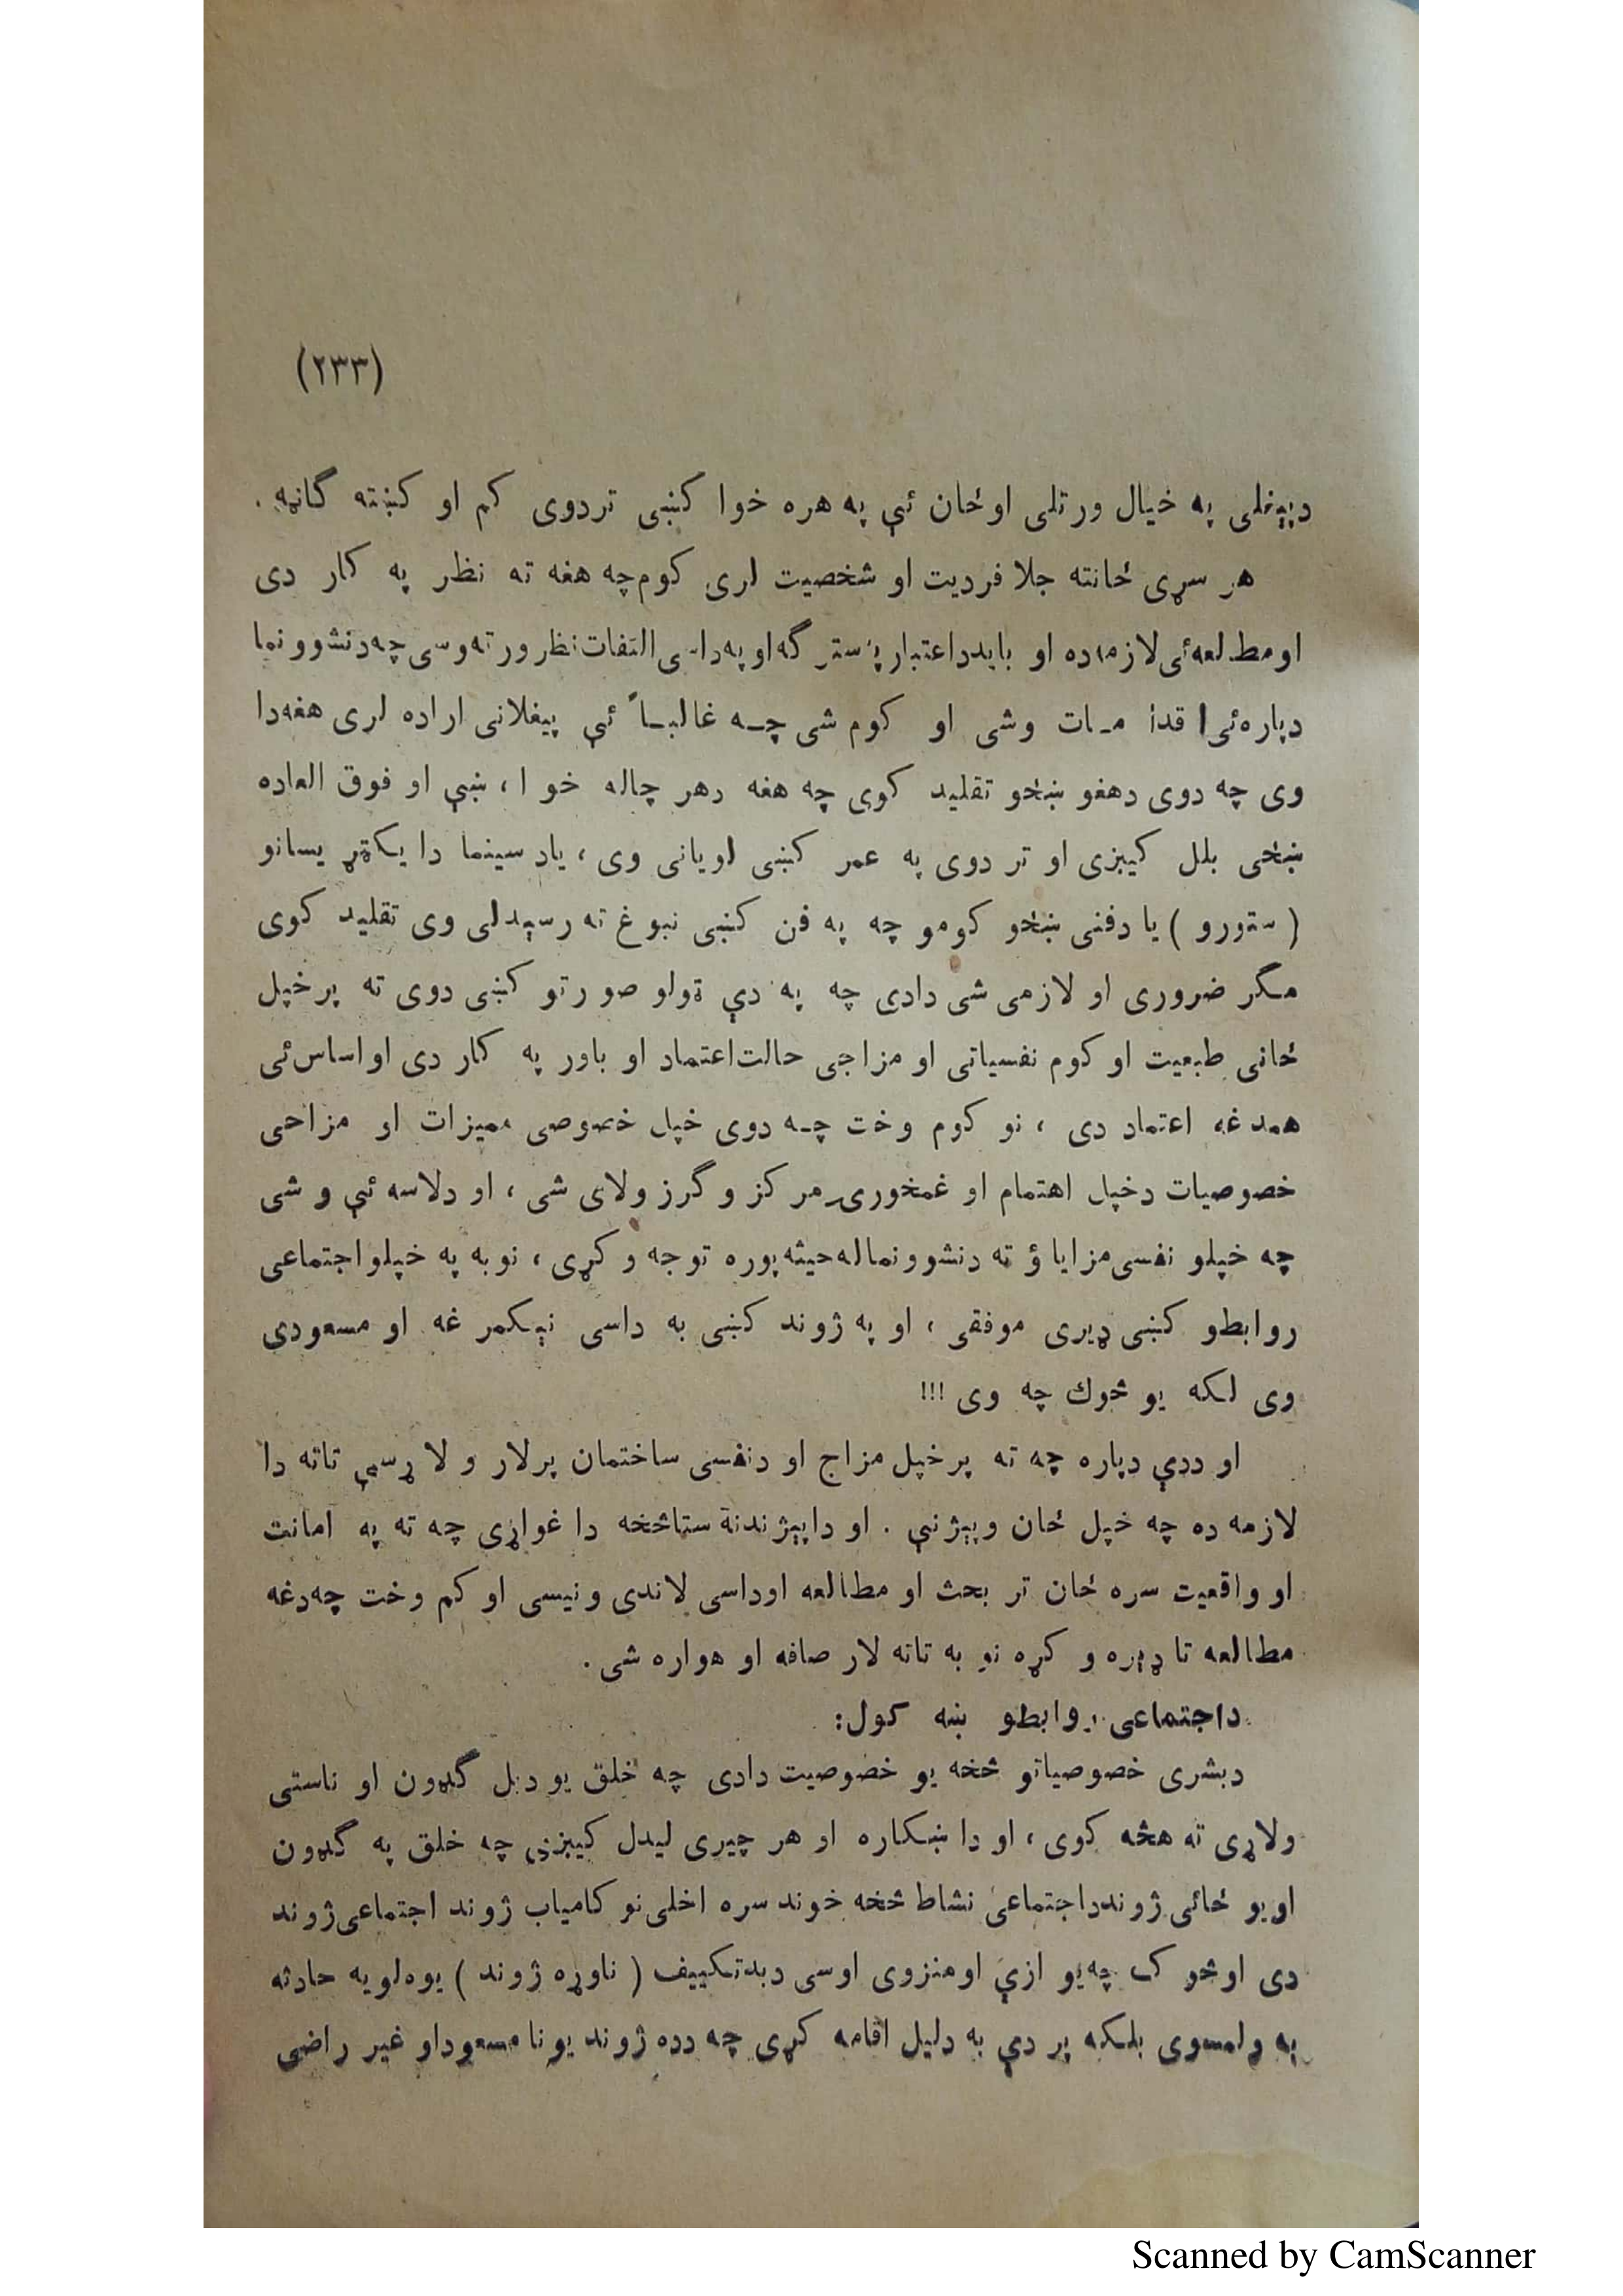 (۲۳۳)
دپېغلی په خیال ورتلی اوځان ئې په هره خوا کښی تردوی کم او کښته گاڼه .
هر سړی ځانته جلا فردیت او شخصیت لری کوم چه هغه ته نظر په کار دی
اومطالعه‌ئی لازمه‌ده او باید داعتبار په‌سترگه‌او په‌داسی التفات نظر ورته‌وسی چه‌دنشوونما
دپاره‌ئی اقدامات وشی او کوم شی چه غالباً ئې پیغلانی اراده لری هغه‌دا
وی چه دوی دهغو ښځو تقلید کوی چه هغه دهر چاله خوا ، ښې او فوق العاده
ښځی بلل کیبزی او تر دوی په عمر کښی لویانی وی ، یاد سینما دایکټریسانو
( ستورو ) یا دفنی ښځو کومو چه په فن کښی نبوغ ته رسېدلی وی تقلید کوی
مگر ضروری او لازمی شی دادی چه په دې ټولو صورتو کښی دوی ته پر خپل
ځانی طبعیت او کوم نفسیاتی او مزاجی حالت‌اعتماد او باور په کار دی او اساس‌ئی
همدغه اعتماد دی ، نو کوم وخت چه دوی خپل خصوصی ممیزات او مزاحی
خصوصیات دخپل اهتمام او غمخوری مرکز و گرزولای شی ، او دلاسه ئې و شی
چه خپلو نفسی مزایاؤ ته دنشوونماله‌حیثه پوره توجه وکړی ، نوبه په خپلو اجتماعی
روابطو کښی ډېری موفقی ، او په ژوند کښی به داسی نېکمرغه او مسعودی
وی لکه یو څوك چه وی !!!
او ددې دپاره چه ته پر خپل مزاج او دنفسی ساختمان پرلار و لاړسې تاته دا
لازمه ده چه خپل ځان وپېژنې . او داپېژندنة ستاڅخه دا غواړی چه ته په امانت
او واقعیت سره ځان تر بحث او مطالعه اوداسی لاندی ونیسی او کم وخت چه‌دغه
مطالعه تا ډېره و کړه نو به تاته لار صافه او هواره شی .
داجتماعی روابطو ښه کول:
دبشری خصوصیاتو څخه یو خصوصیت دادی چه خلق یو دبل گډون او ناستی
ولاړی ته هڅه کوی ، او دا ښکاره او هر چیری لیدل کیبزی چه خلق په گډون
اویو ځائی ژوند داجتماعی نشاط څخه خوند سره اخلی نو کامیاب ژوند اجتماعی ژوند
دی اوڅوک چه‌یوازې اومنزوی اوسی دبدتکییف ( ناوړه ژوند ) یوه‌لویه حادثه
به ولمسوی بلکه پر دې به دلیل اقامه کړی چه دده ژوند یونا مسعوداو غیر راضی
Scanned by CamScanner